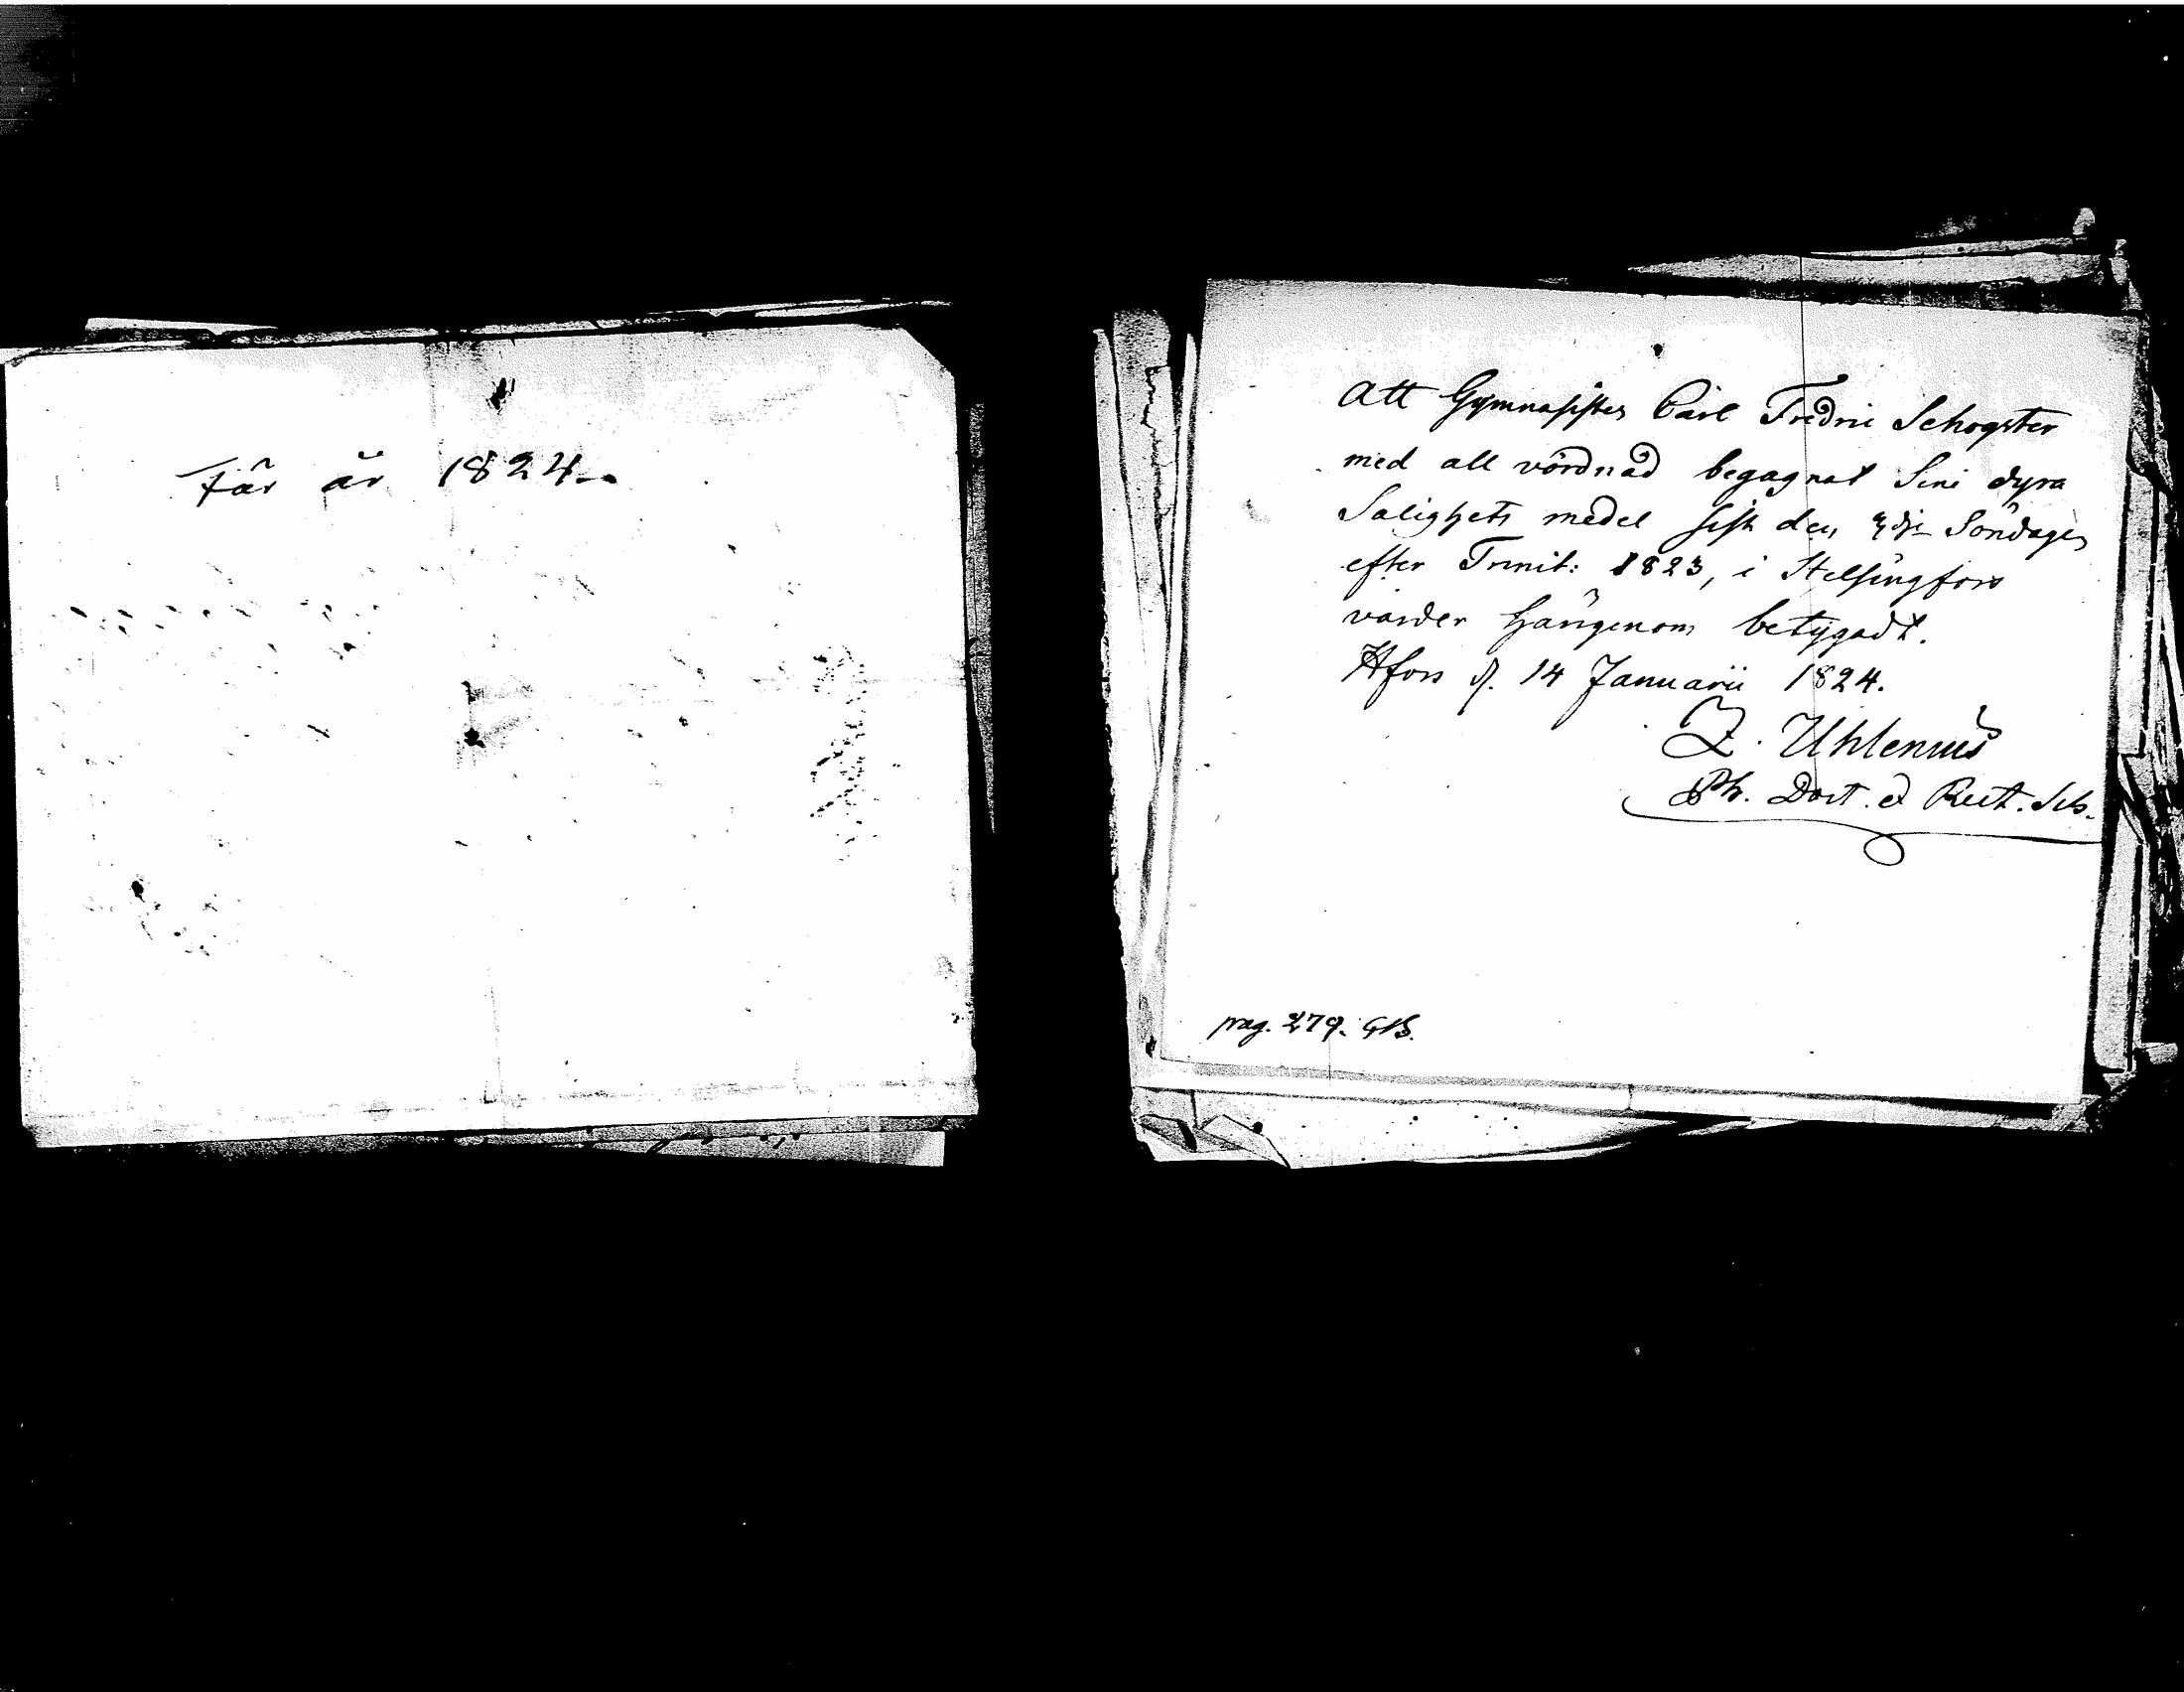 För år 1824.
Att Gymnasisten Carl Fredric Schogster
med all vördnad begagnat sine dyra
Salighets medel sist den Söndagen
efter Trinit: 1823, i Helsingfors
varder härigenom betygadt.
Hfors d. 14 Januarii 1824.
Z. Uhlenius
Ph. Doct. et Rect. Sch.
pag. 279.